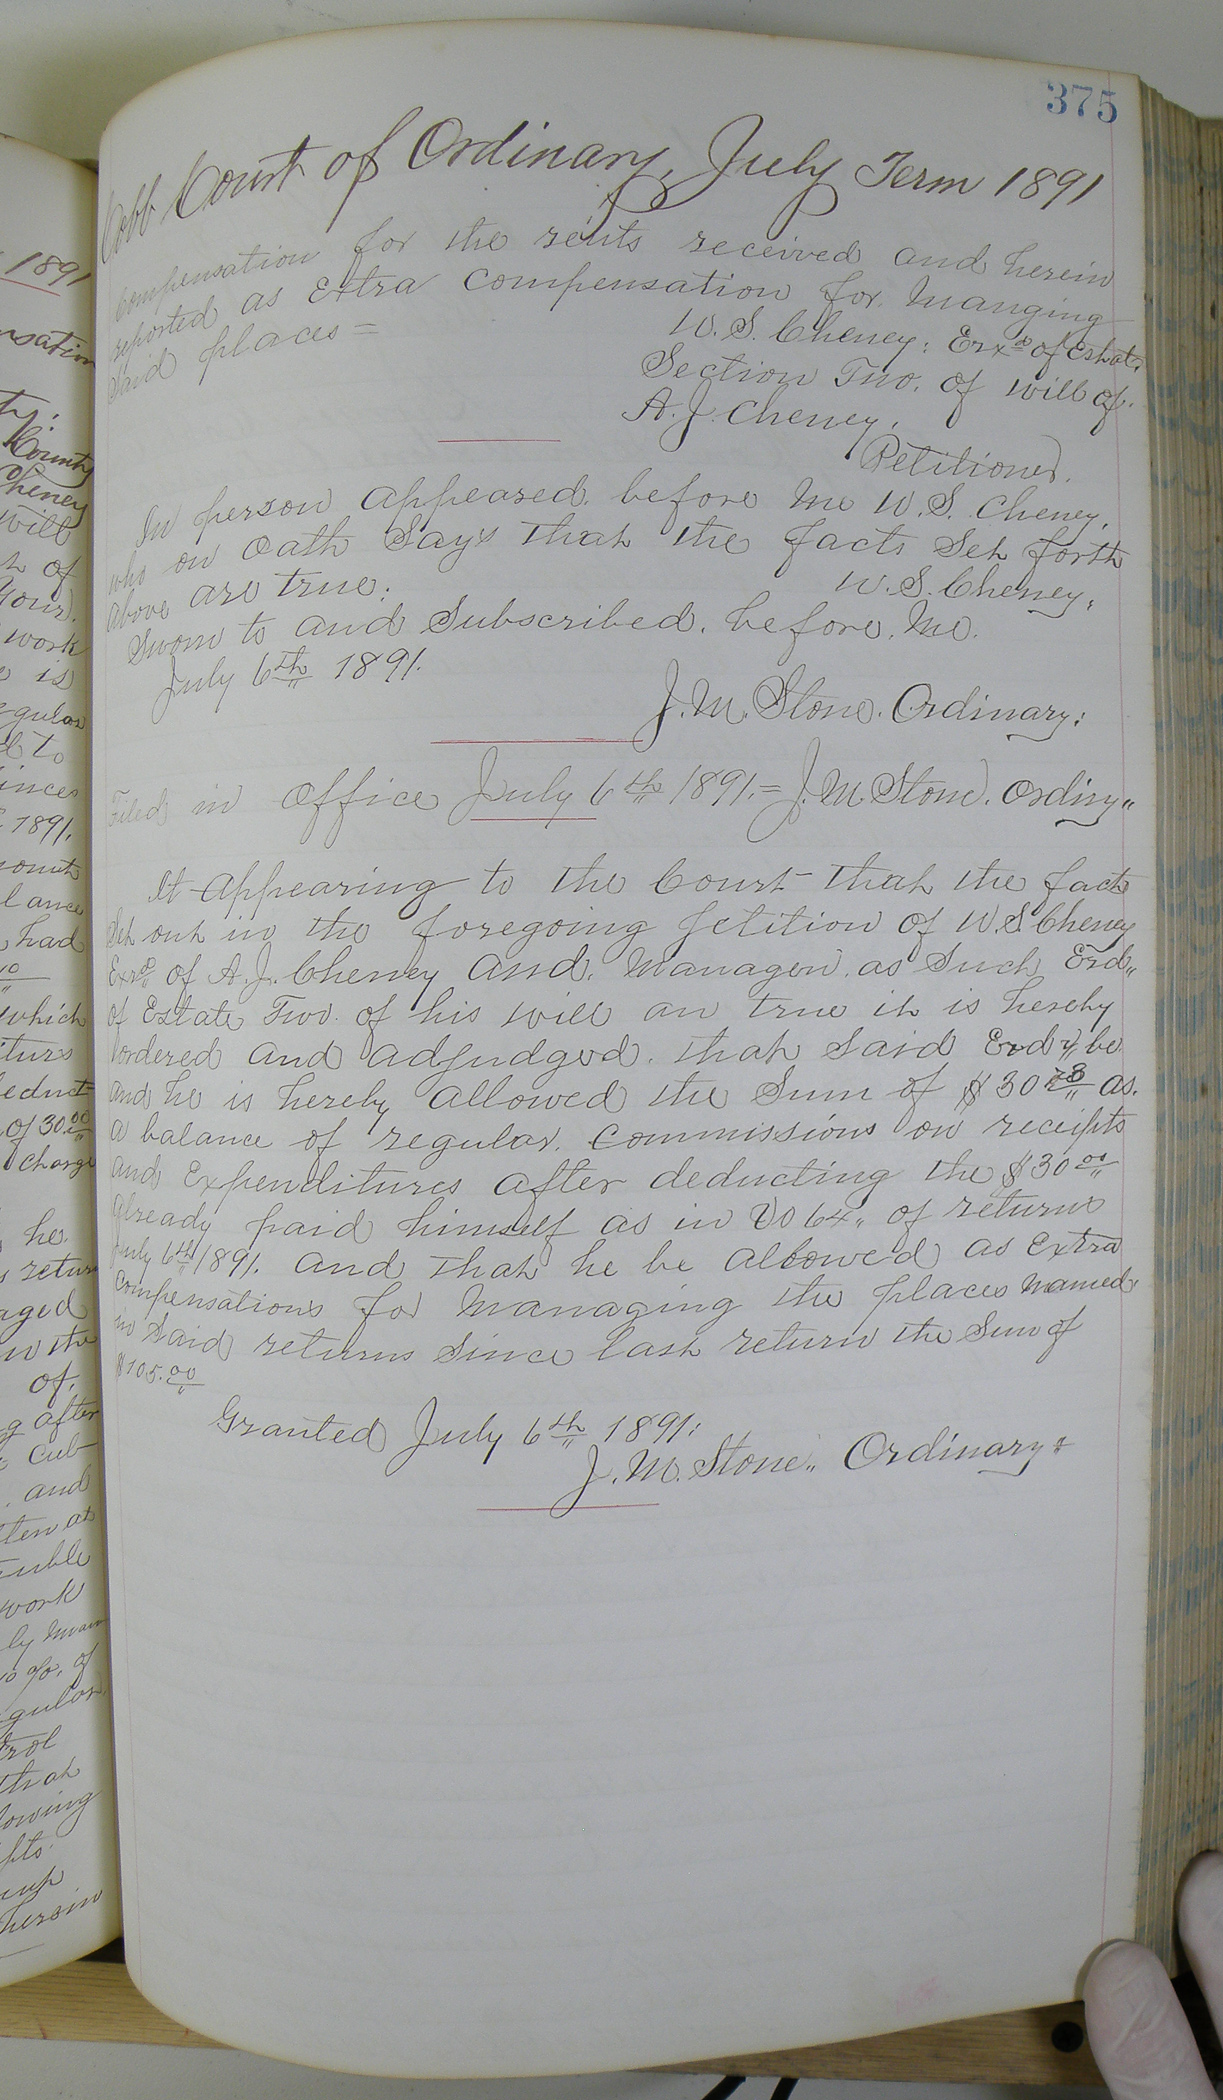 375
Cobb Court of Ordinary, July Term 1891
Compensation for the rents received and herein
reported as Extra Compensation for Manging
Said places =
W. S. Cheney: Exr of Estate
Section Two. of will of.
A. J. Cheney.
Petitioner.
In person appeared. before Me W. S. Cheney.
who on Oath Say's that the facts Set forth
above are true:
W. S. Cheney.
Sworn to and Subscribed. before. Me.
July 6th 1891.
J. M. Stone. Ordinary:
Filed in Office July 6th 1891. = J. M. Stone. Ordiny"
It Appearing to the Court that the facts
Set out in the foregoing petition of W. S. Cheney
Exr of A. J. Cheney and. Manager. as Such
of Estate Two. of his will are true it is hereby
ordered and adjudged. that Said be
and he is hereby allowed the Sum of $30 as.
a balance of regular. Commissions on receipts
and Expenditures after deducting the $30 00
Already paid himself as in Vo 64" of returns
July 6th 1891. and that he be allowed as Extra
Compensations for Managing the places named
in Said returns Since last return the Sum of
$105.00
Granted July 6th 1891:
J. M. Stone" Ordinary
1891
nsation
ty.
County
Cheney
will
of
your.
work
is
egular
to
1891.
had
which
educt
of 30 00
charge
he
return
aged
in the
of.
g after
cub
and
work
of
gular
trol
that
lowing
herein